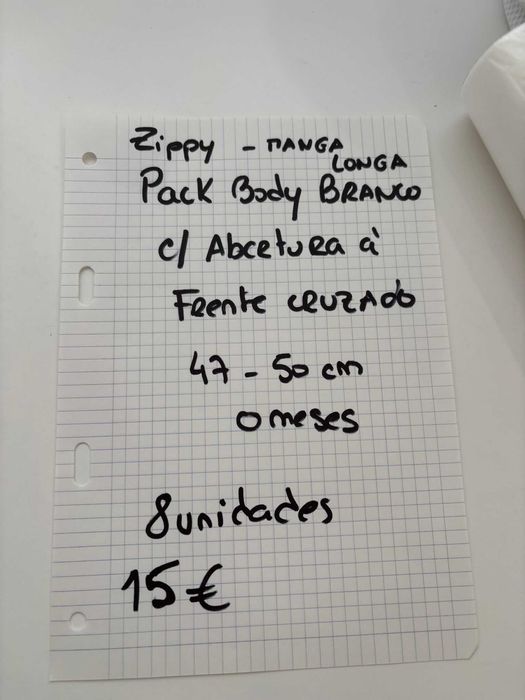 Zippy - MANGA
LONGA
Pack Body BRANCO
c/ Abertura à
Frente CRUZADO
47 - 50 cm
0 meses
8 unidades
15 €